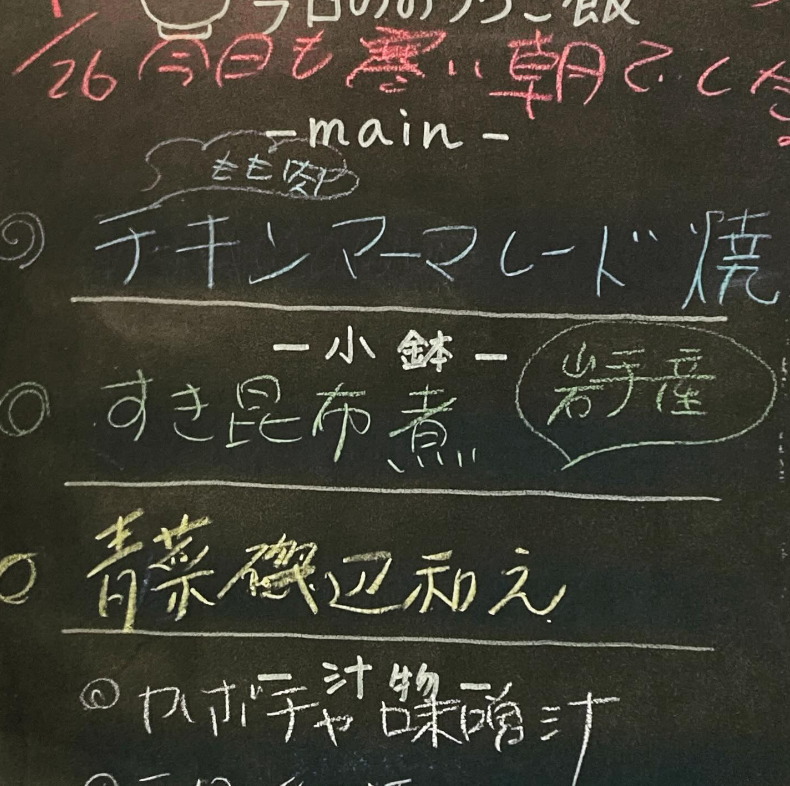 今日のおうちご飯
1/26 今日も寒い朝でした
-main-
もも肉
チキンマーマレード焼
-小鉢-
岩手産
すき昆布煮
青菜磯辺和え
-汁物-
カボチャ味噌汁